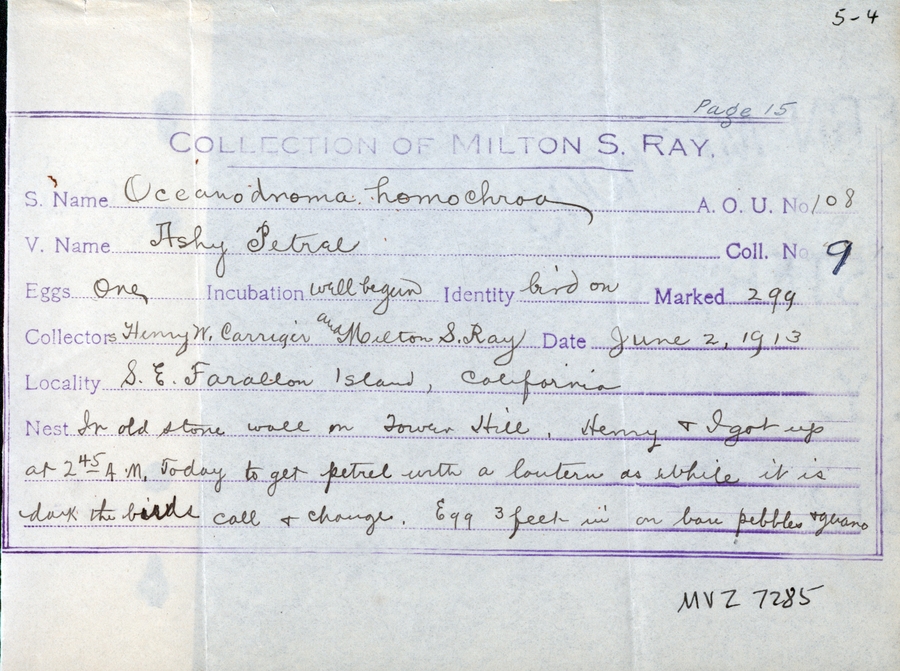 5-4
Page 15
COLLECTION OF MILTON S. RAY.
S. Name Oceanodroma homochroa A. O. U. No 108
V. Name Ashy Petrel Coll. No 9
Eggs One Incubation well begun Identity bird on Marked 299
Collectors Henry W. Carriger and Milton S. Ray Date June 2, 1913
Locality S. E. Farallon Island, California
Nest In old stone wall on Tower Hill. Henry & I got up
at 2 45 A.M. Today to get petrel with a lantern as while it is
dark the birds call & change. Egg 3 feet in on bare pebbles & guano
MVZ 7285